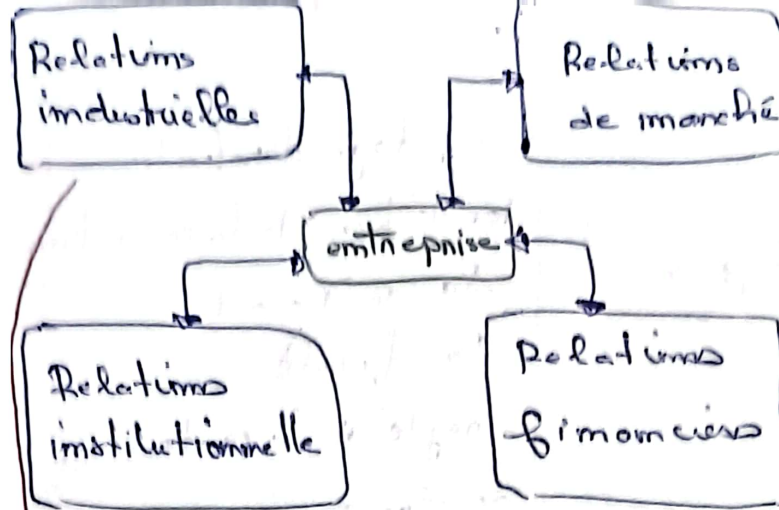 Relations
industrielles
Relations
de marché
entreprise
Relations
institutionnelle
Relations
financiers